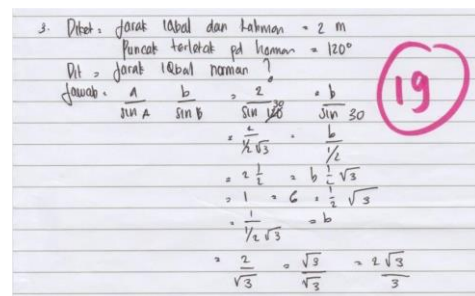 3. Diket : Jarak Iqbal dan Lukman = 2 m
Puncak terletak pd Norman = 120°
Dit = Jarak Iqbal norman ?
Jawab = a/sin A b/sin B = 2/sin 120 = b/sin 30
19
= 2/½√3 = b/½
= 2 ½ = b ½ √3
= 1 = 6 = ½ √3
= 1/½√3 = b
= 2/√3 = √3/√3 = 2√3/3